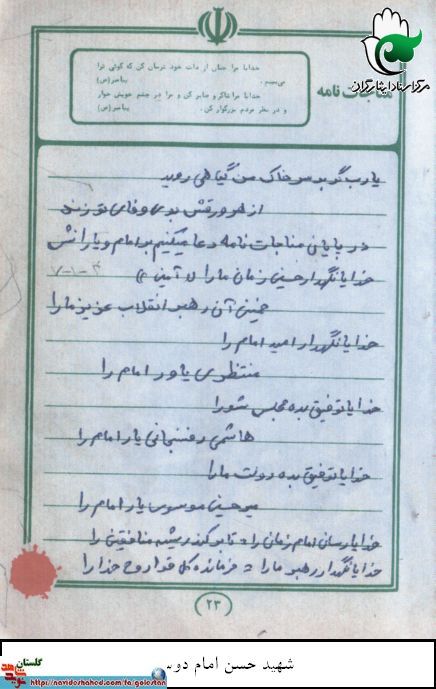 خدایا مرا چنان از ذات خود ترسان کن که گوئی ترا
می‌بینم. پیامبر(ص)
خدایا مرا شاکر و صابر کن و مرا در چشم خویش خوار
و در نظر مردم بزرگوار کن. پیامبر(ص)
مناجات نامه
مرکز اسناد ایثارگران
یا رب گر بر سر خاک من گیاهی روید
از هر ورقش بوی وفای تو زند
در پایانی مناجات نامه دعا میکنیم بر امام و یارانش
خدایا نگهدار حسینی زمان ما را (آمین ۳) ۷-۱-۳
خمینی آن رهبر انقلاب عزیز ما را
خدایا نگهدار امید امام را
منتظری یاور امام را
خدایا توفیق بده مجلس شورا
هاشمی رفسنجانی یار امام را
خدایا توفیق بده دولت ما را
میرحسین موسوی یار امام را
خدایا رسان امام زمانی را تا بر کند ریشه منافقین را
خدایا نگهدار رهبر ما را فرمانده کل قوا روح خدا را
۲۳
شهید حسن امام دوست
گلستان
نوید شاهد
https://navideshahed.com/fa/golestan